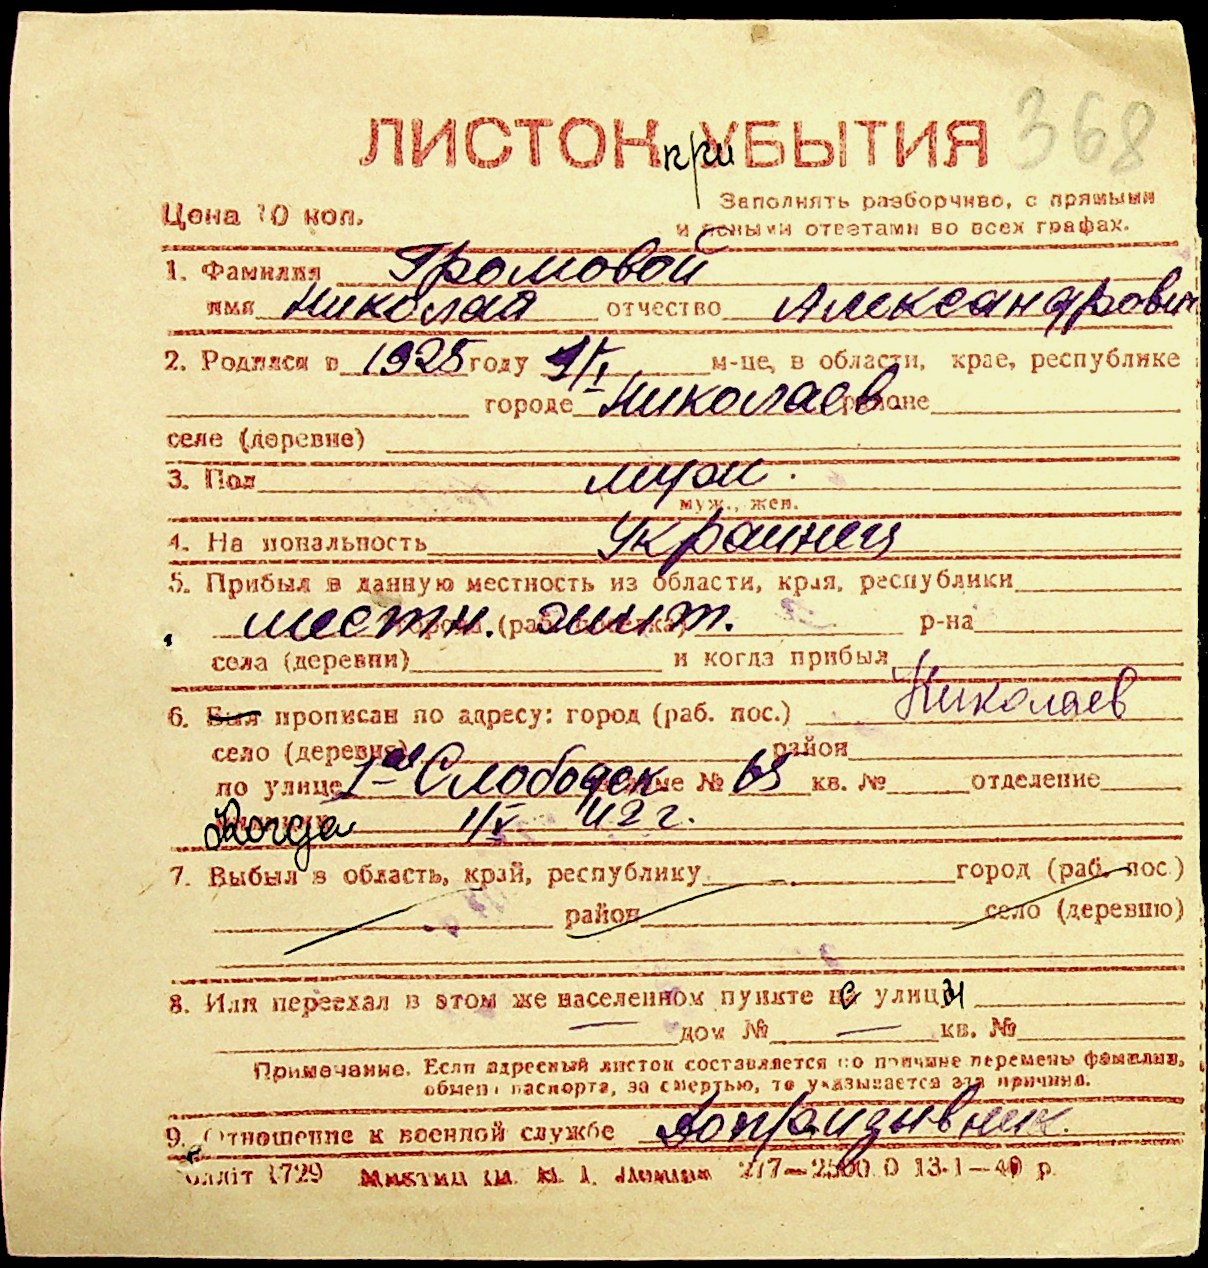 368
ЛИСТОК при УБЫТИЯ
Цена 10 коп.
Заполнять разборчиво, с прямыми
и ясными ответами во всех графах.
1. Фамилия Громовой
имя Николай отчество Александрович
2. Родился в 1925 году 1/I м-це, в области, крае, республике
городе Николаев районе
селе (деревне)
3. Пол муж.
муж., жен.
4. Национальность Украинец
5. Прибыл в данную местность из области, края, республики
местн. жит. города (раб. поселка) р-на
села (деревни) и когда прибыл
6. Был прописан по адресу: город (раб. пос.) Николаев
село (деревня) район
по улице 1-ая Слободск доме № 65 кв. № отделение
Когда 1/V 42 г.
7. Выбыл в область, край, республику город (раб. пос.)
район село (деревню)
8. Или переехал в этом же населенном пункте с улицы
— дом № — кв. №
Примечание. Если адресный листок составляется по причине перемены фамилии,
обмена паспорта, за смертью, то указывается эта причина.
9. Отношение к военной службе Допризывник.
олліт 1729 217—2500.0 13-1—40 р.